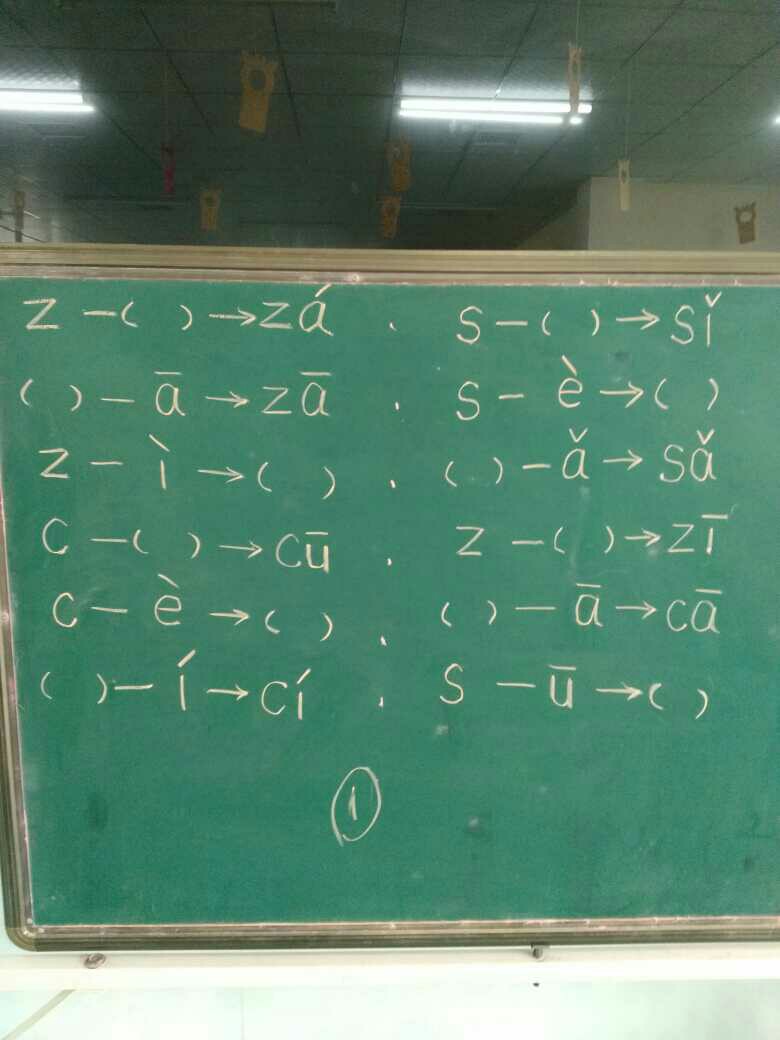 z —( )→zá . s—( )→sǐ
( )— ā →zā . s— è→( )
z — ì →( ) . ( )—ǎ→ sǎ
c —( )→cū . z —( )→zī
c— è →( ) . ( )— ā→cā
( )— í→cí . s — ū →( )
①